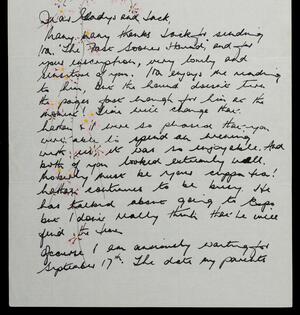 Dear Gladys and Jack,
Many many thanks Jack for sending
Ira The Fast Sooner Hound, and for
your inscription, very lovely and
sensitive of you. Ira enjoys the reading
to him, But the hound doesn't turn
the pages fast enough for him at the
moment! Time will change that.
I were so pleased that you
were able to spend an evening
with us, it was so enjoyable. And
both of you looked extremely well,
must be your suppertea!
continues to be busy. He
has talked about going to
but I don't really think that he will
find the time.
Of course I am anxiously waiting for
September 17th. The date my parents